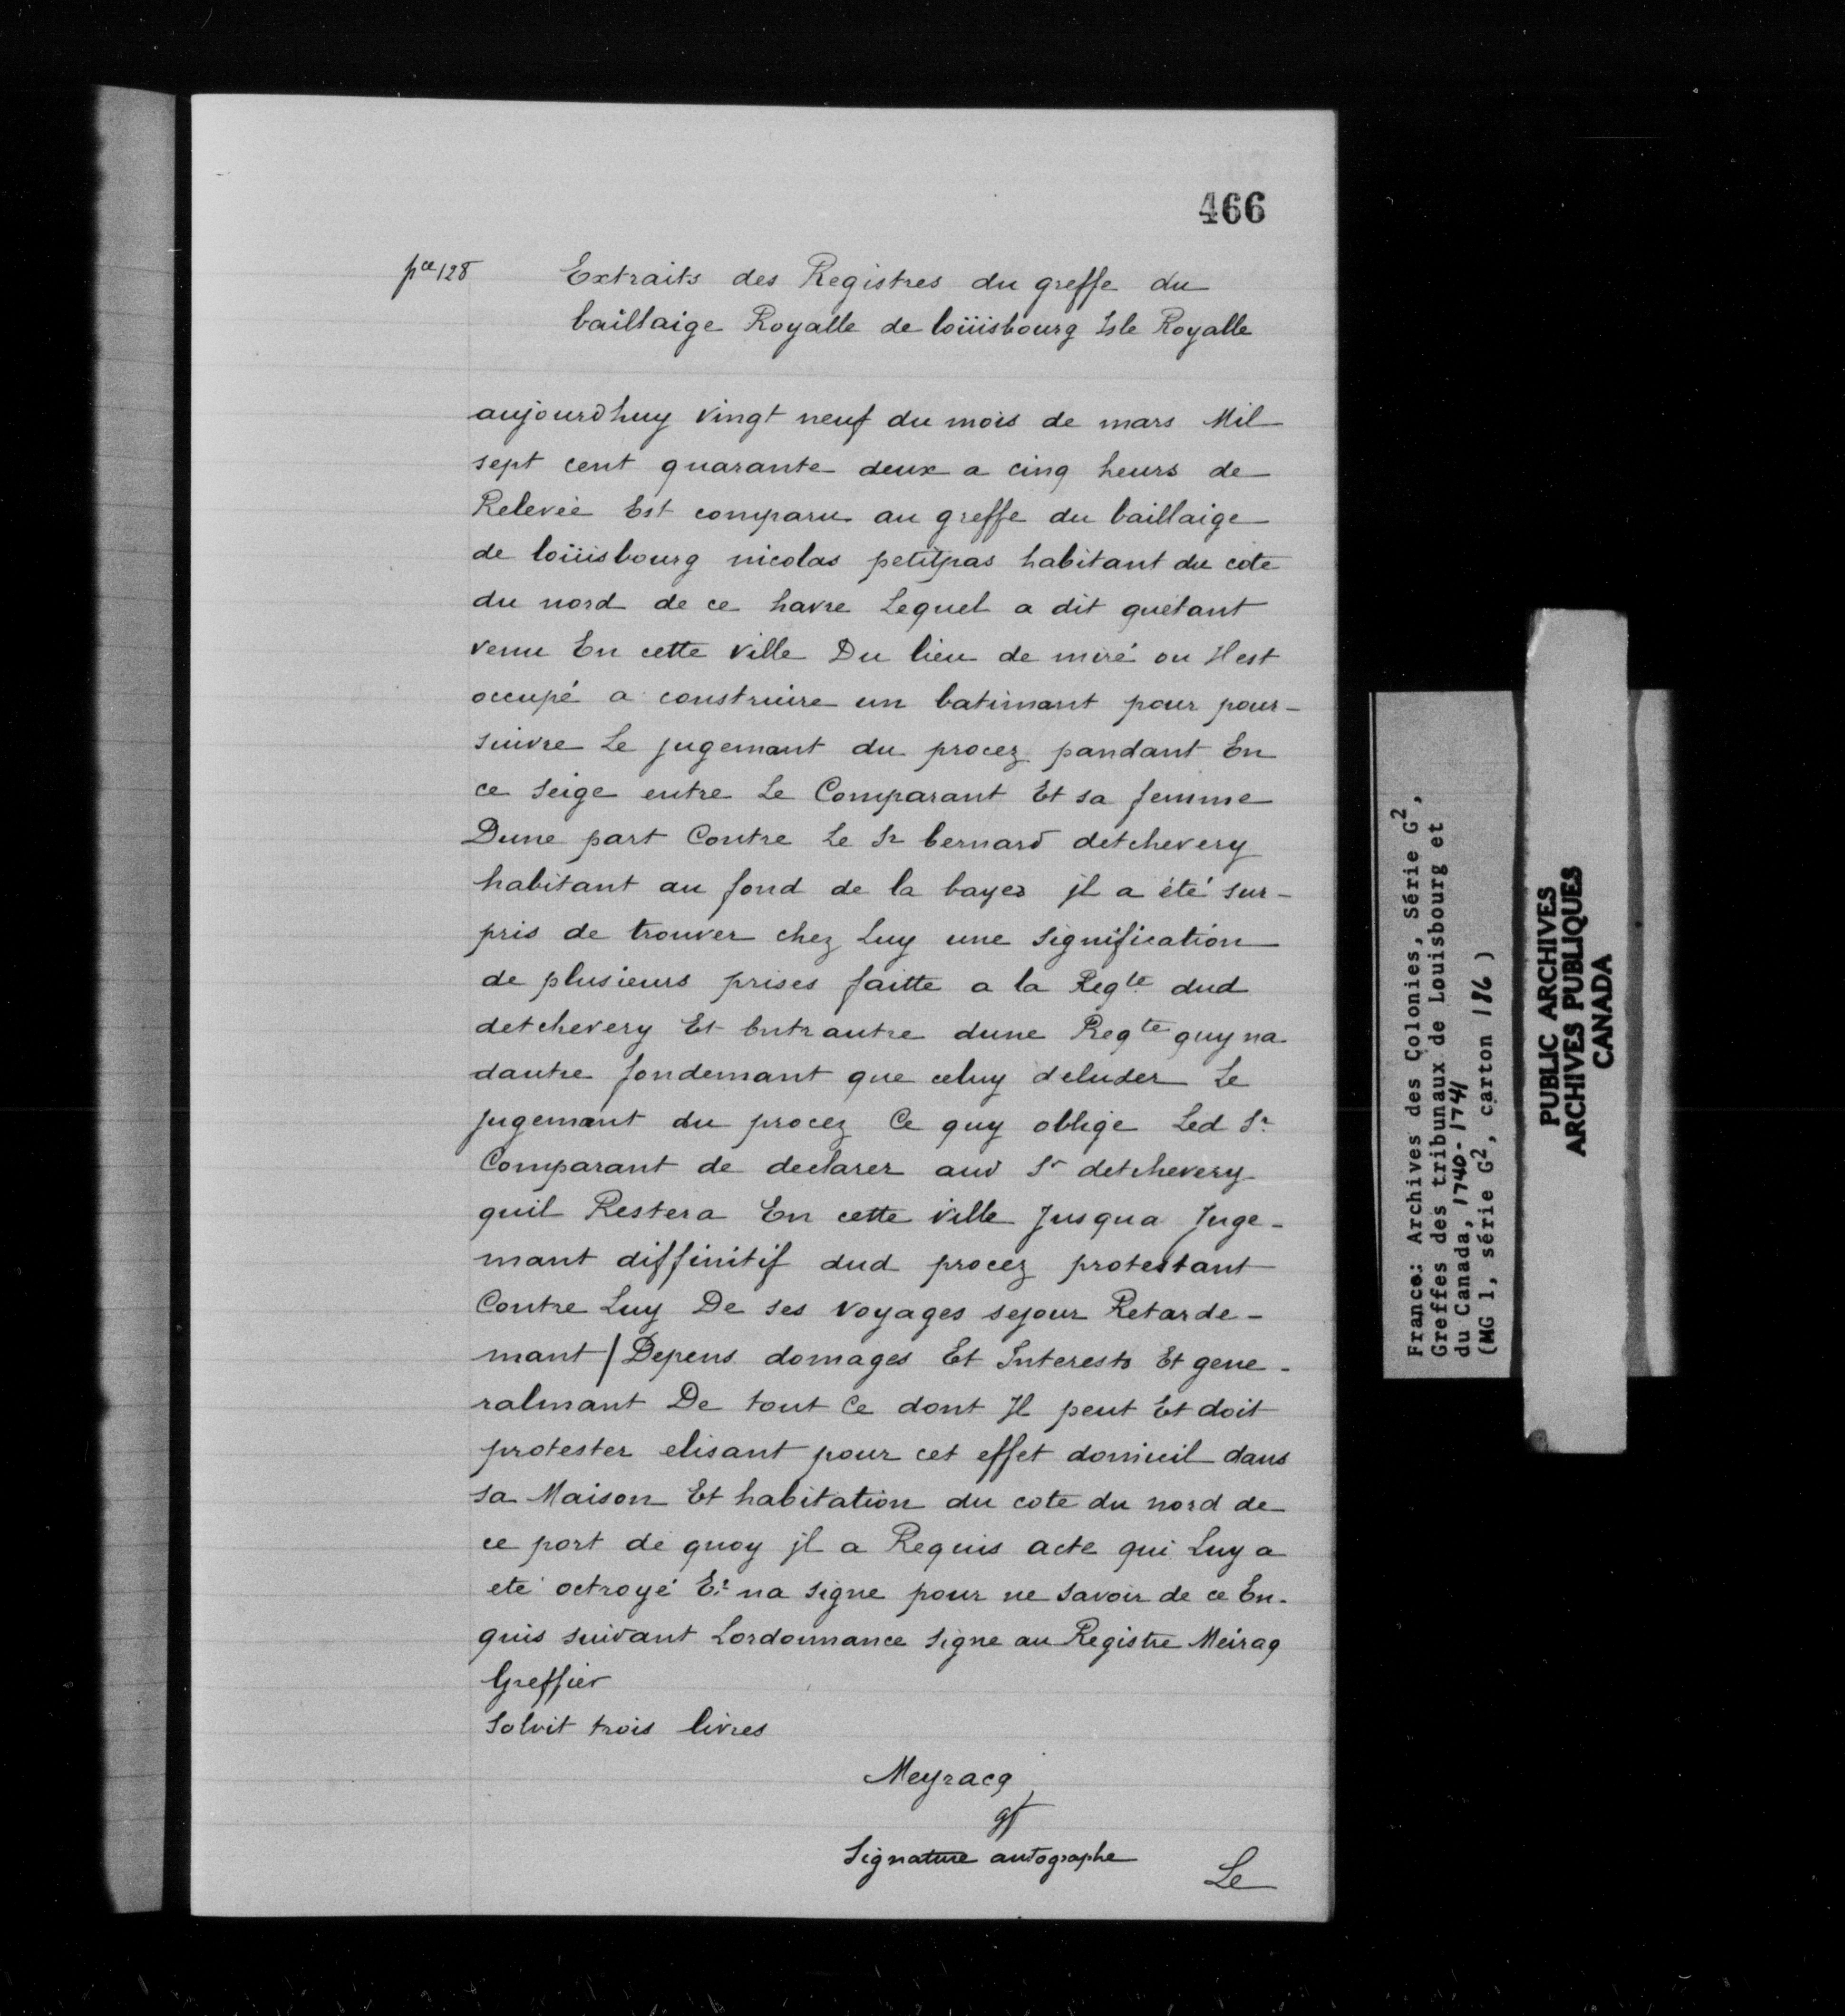 466
pce 128
Extraits des Registres du greffe du
baillaige Royalle de loüisbourg Isle Royalle
aujourdhuy vingt neuf du mois de mars Mil
sept cent quarante deux a cinq heurs de
Relevée Est comparu au greffe du baillaige
de loüisbourg nicolas petitpas habitant du cote
du nord de ce havre Lequel a dit quetant
venu En cette ville Du lieu de miré ou Il est
occupé a construire un batimant pour pour-
suivre Le jugemant du procez pandant En
ce seige entre Le Comparant Et sa femme
Dune part Contre Le Sr bernard detchevery
habitant au fond de la bayes jl a été sur-
pris de trouver chez Luy une signification
de plusieurs prises faitte a la Reqte dud
detchevery Et Entrautre dune Reqte quy na
dautre fondemant que celuy deluder Le
jugemant du procez Ce quy oblige Led Sr
Comparant de declarer aud Sr detchevery
quil Restera En cette ville Jusqua Juge-
mant diffinitif dud procez protestant
Contre Luy De ses voyages sejour Retarde-
mant / Depens domages Et Interests Et gene-
ralmant De tout Ce dont Jl peut Et doit
protester elisant pour cet effet domicil dans
sa Maison Et habitation du cote du nord de
ce port de quoy jl a Requis acte qui Luy a
eté octroyé Et na signe pour ne savoir de ce En-
quis suivant Lordonnance signe au Registre Meiraq
Greffier
Solvit trois livres
Meyracq
gf
Signature autographe
Le
France: Archives des Colonies, Série G2,
Greffes des tribunaux de Louisbourg et
du Canada, 1740-1741
(MG 1, série G2, carton 186 )
PUBLIC ARCHIVES
ARCHIVES PUBLIQUES
CANADA